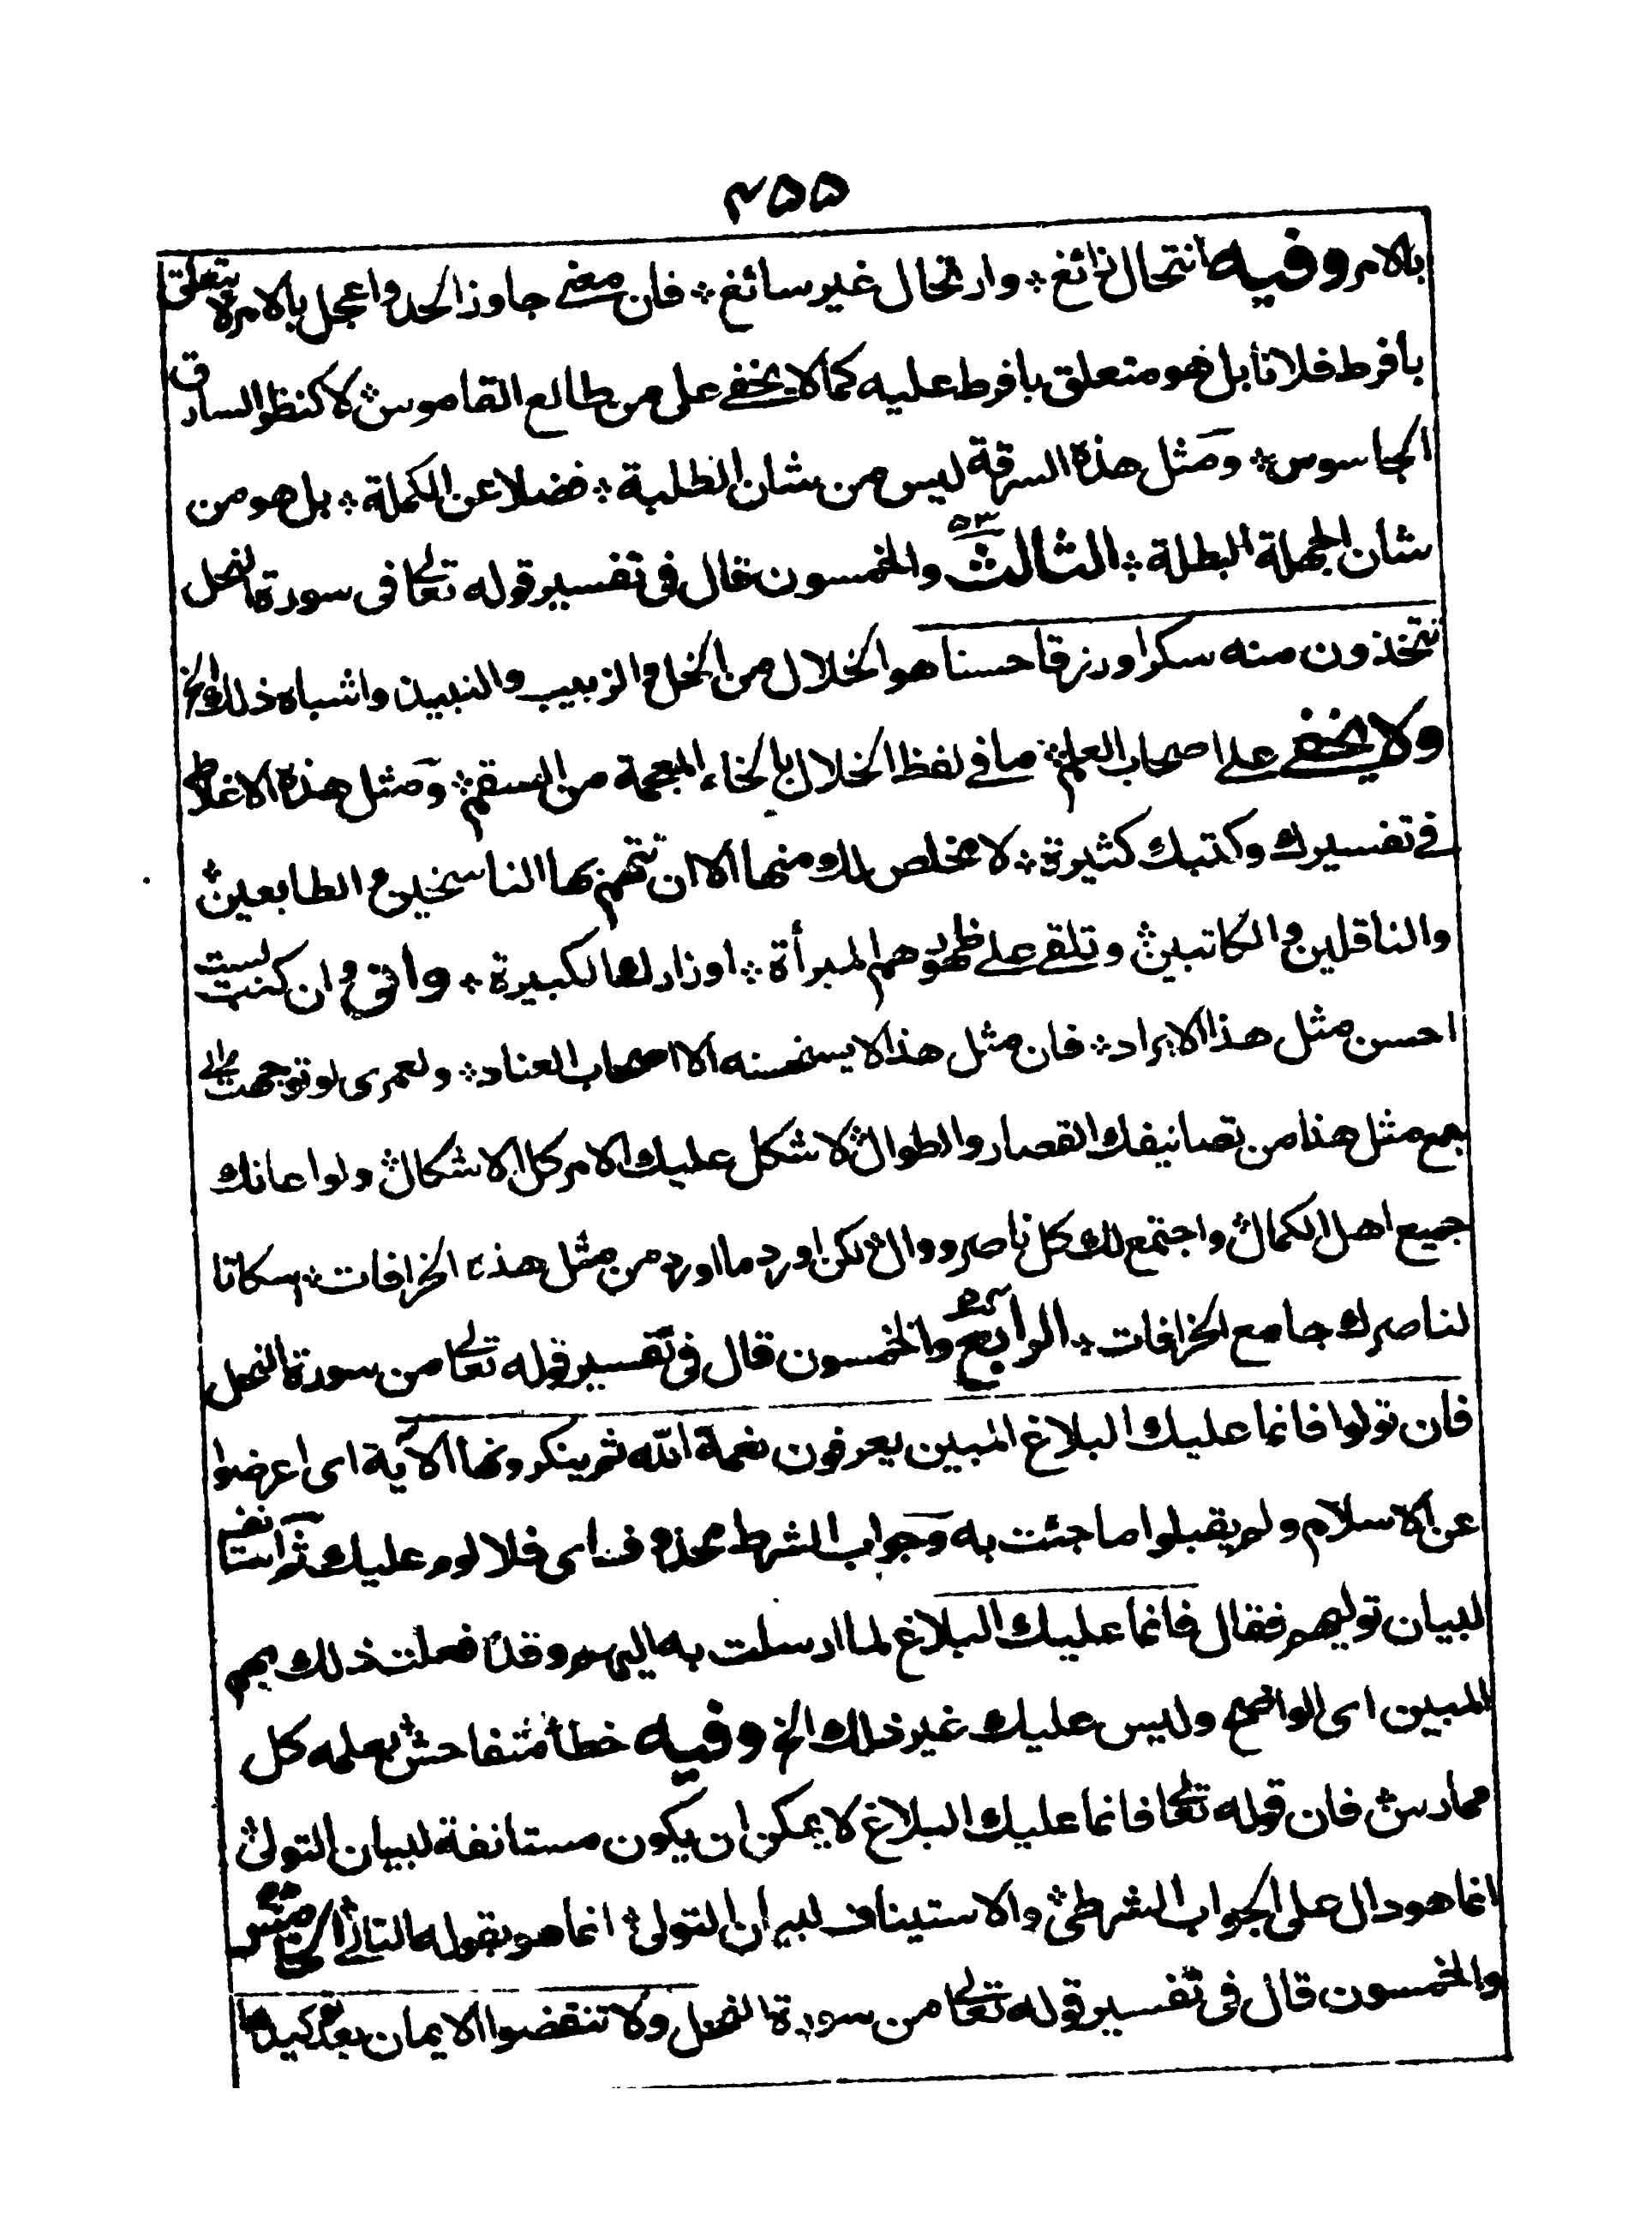 ٤٥٥
بالامر وفيه انتحال زائغ ۞ وارتحال غير سائغ ۞ فان معنى جاوز الحد واعجل بالامر لا يتعلق
بافرط فلانا بل هو متعلق بافرط عليه كما لا يخفى على من طالع القاموس ۞ لا كنظر السارق
الجاسوس ۞ ومثل هذه السرقة ليس من شان الطلبة ۞ فضلا عن الكملة ۞ بل هو من
شان الجهلة البطلة ۞ الثالث ٥٣ والخمسون قال فى تفسير قوله تعالى فى سورة النحل
تتخذون منه سكرا ورزقا حسنا هو الخلال من الخل والزبيب والنبيذ واشباه ذلك الخ
ولا يخفى على اصحاب العلم ۞ ما فى لفظ الخلال بالخاء المعجمة من السقم ۞ ومثل هذه الاغلاط
فى تفسيرك وكتبك كثيرة ۞ لا مخلص لك منها الا ان تتهم بها الناسخين والطابعين ۞
والناقلين والكاتبين ۞ وتلقى على ظهورهم المبرأة ۞ اوزارها الكبيرة ۞ وانى وان كنت لست
احسن مثل هذا الايراد ۞ فان مثل هذا لا يستحسنه الا اصحاب العناد ۞ ولعمرى لو توجهت الى
جمع مثل هذا من تصانيفك القصار والطوال ۞ لاشكل عليك الامر كل الاشكال ۞ ولو اعانك
جميع اهل الكمال ۞ واجتمع لك كل ناصر ووال ۞ لكن اورد ما اورد من مثل هذه الخرافات ۞ اسكاتا
لناصرك جامع الخرافات ۞ الرابع ٥٤ والخمسون قال فى تفسير قوله تعالى من سورة النحل
فان تولوا فانما عليك البلاغ المبين يعرفون نعمة الله ثم ينكرونها الآية اى اعرضوا
عن الاسلام ولم يقبلوا ما جئت به وجواب الشرط محذوف اى فلا لوم عليك ثم استانف
لبيان توليهم فقال فانما عليك البلاغ لما ارسلت به اليهم وقد فعلت ذلك بهم
المبين اى الواضح وليس عليك غير ذلك الخ وفيه خطأ متفاحش ۞ يعلمه كل
ممارس ۞ فان قوله تعالى فانما عليك البلاغ لا يمكن ان يكون مستانفة لبيان التولى ۞
انما هو دال على الجواب الشرطى ۞ والاستيناف لبيان التولى ۞ انما هو بقوله التالى ۞ الخامس ٥٥
والخمسون قال فى تفسير قوله تعالى من سورة النحل ولا تنقضوا الايمان بعد توكيدها